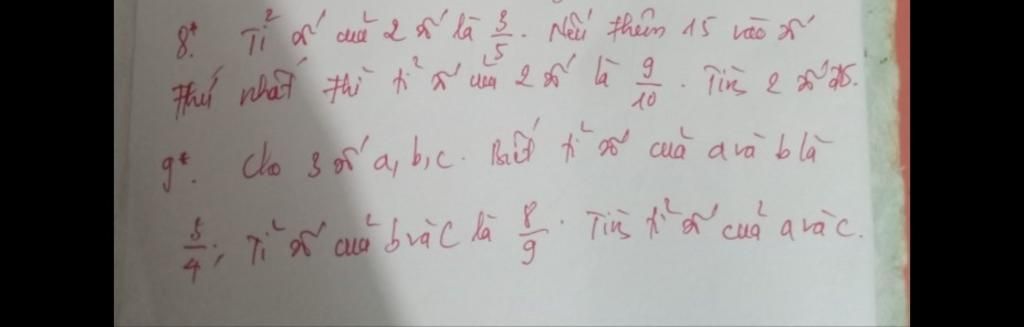 8*. Tỉ số của 2 số là 3/5. Nếu thêm 15 vào số
thứ nhất thì tỉ số của 2 số là 9/10. Tìm 2 số đó.
9*. Cho 3 số a, b, c. Biết tỉ số của a và b là
5/4; Tỉ số của b và c là 8/9. Tìm tỉ số của a và c.